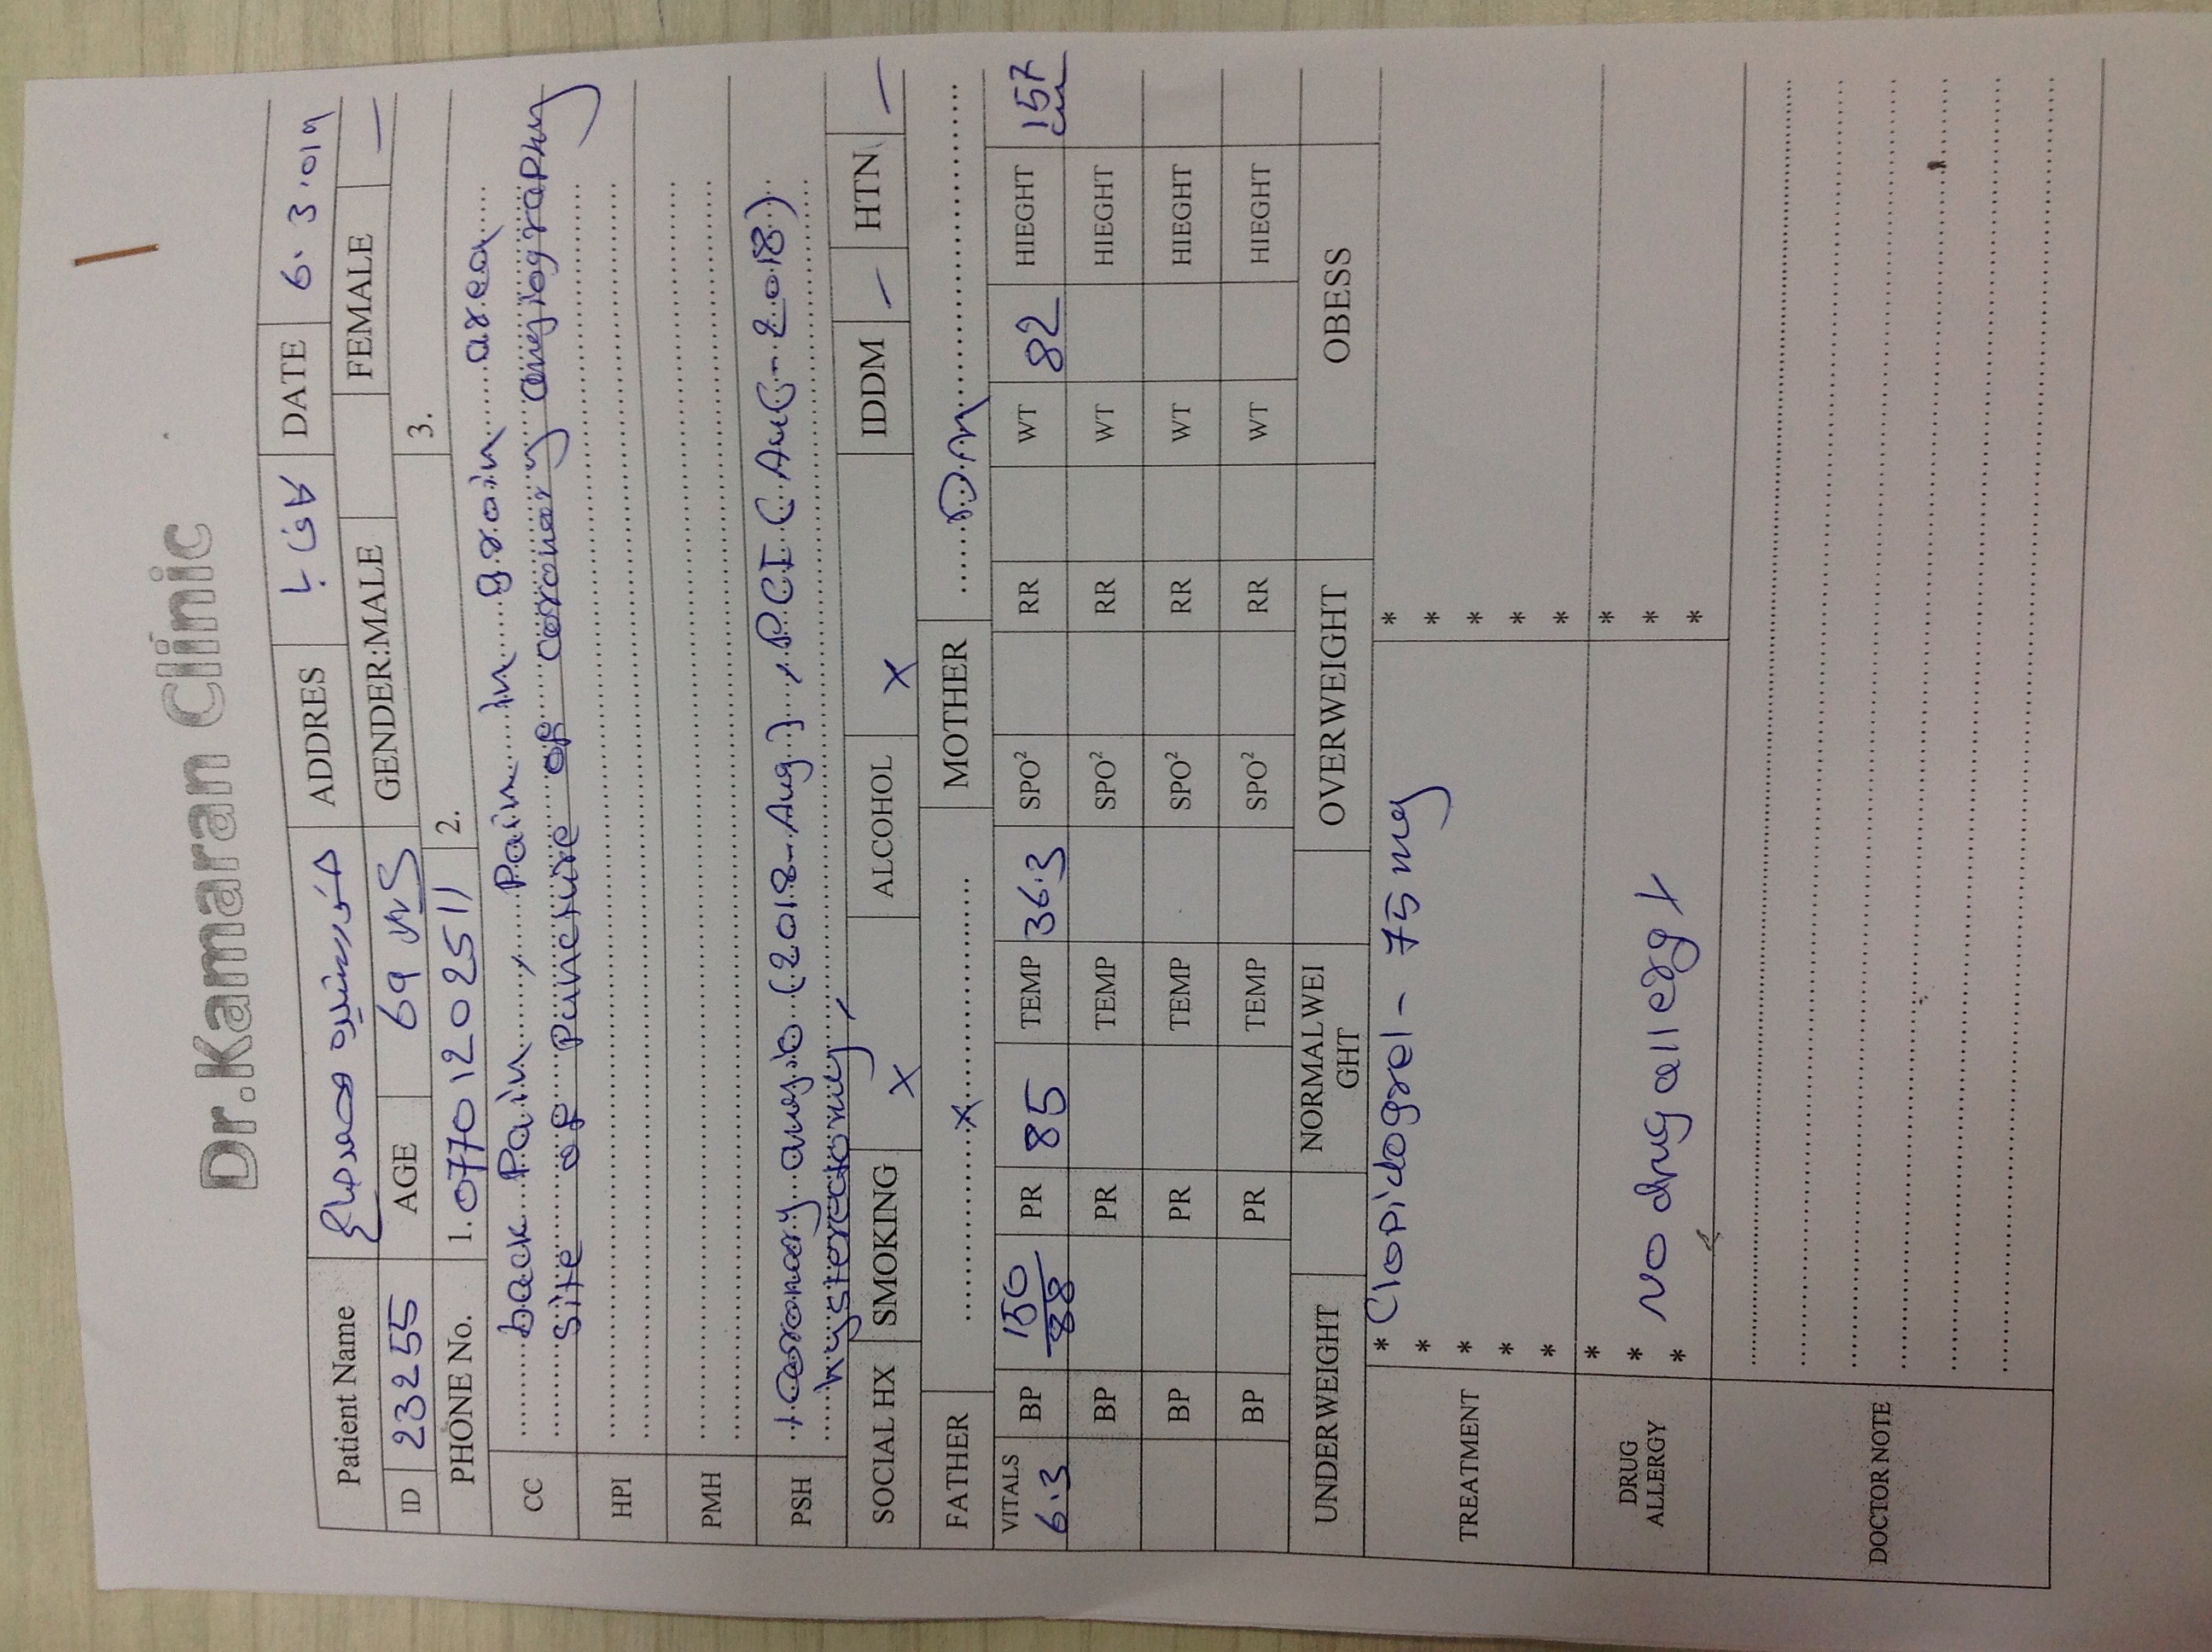 Dr.Kamaran Clinic
Patient Name ADDRES DATE 6.3.019
ID 23255 AGE 69 yrs GENDER:MALE FEMALE –
PHONE No. 1. 0770 120 2511 2. 3.
CC back Pain, Pain in groin area
site of puncture of coronary angiography
HPI
PMH
PSH + Coronary angio (2018-Aug), PCI (AuG-2018)
hysterectomy
SOCIAL HX SMOKING X ALCOHOL X IDDM – HTN –
FATHER X MOTHER DM
VITALS 6.3 BP 150/88 PR 85 TEMP 36.3 SPO² RR WT 82 HIEGHT 157 cm
BP PR TEMP SPO² RR WT HIEGHT
BP PR TEMP SPO² RR WT HIEGHT
BP PR TEMP SPO² RR WT HIEGHT
UNDERWEIGHT NORMALWEI
GHT OVERWEIGHT OBESS
TREATMENT * Clopidogrel - 75 mg *
* *
* *
* *
* *
DRUG
ALLERGY * *
* No drug allergy *
* *
DOCTOR NOTE